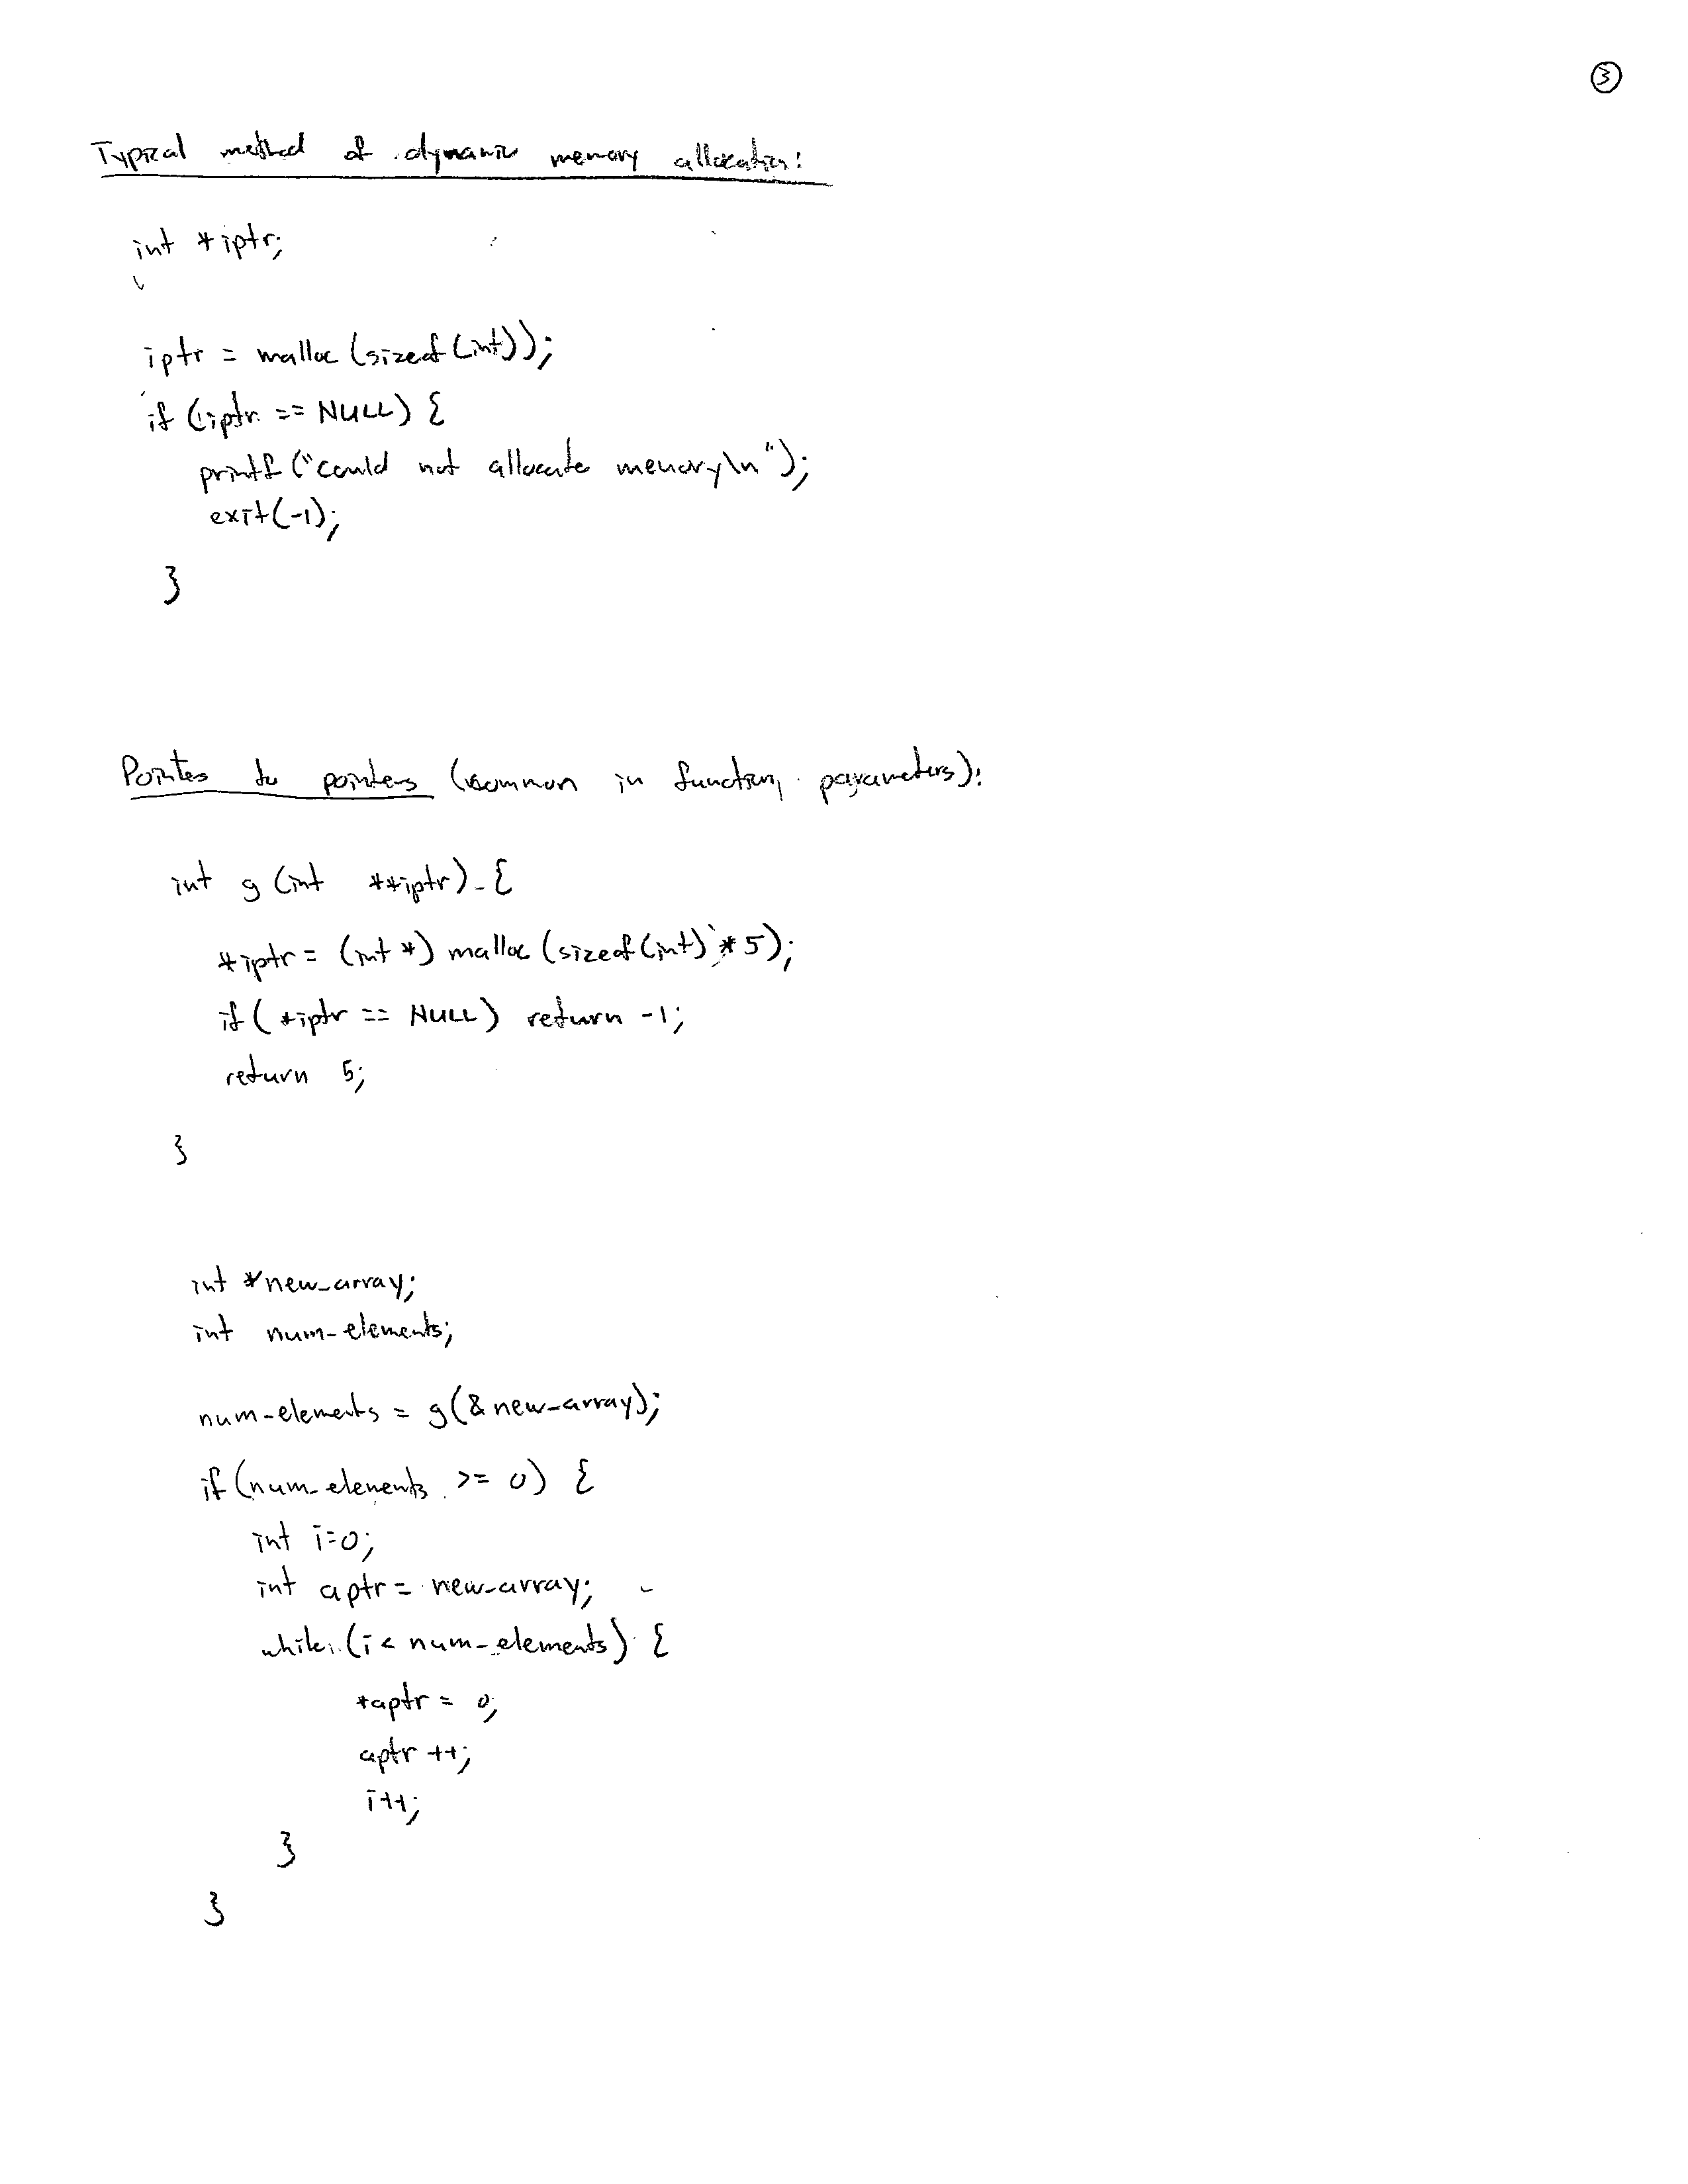 3
Typical method of dynamic memory allocation:
int *iptr;
iptr = malloc (sizeof (int));
if (iptr == NULL) {
printf ("could not allocate memory\n");
exit(-1);
}
Pointers to pointers (common in function parameters):
int g (int **iptr) {
*iptr = (int *) malloc (sizeof (int) * 5);
if ( *iptr == NULL) return -1;
return 5;
}
int *new_array;
int num_elements;
num_elements = g(&new_array);
if (num_elements >= 0) {
int i=0;
int aptr = new_array;
while (i < num_elements) {
*aptr = 0;
aptr ++;
i++;
}
}